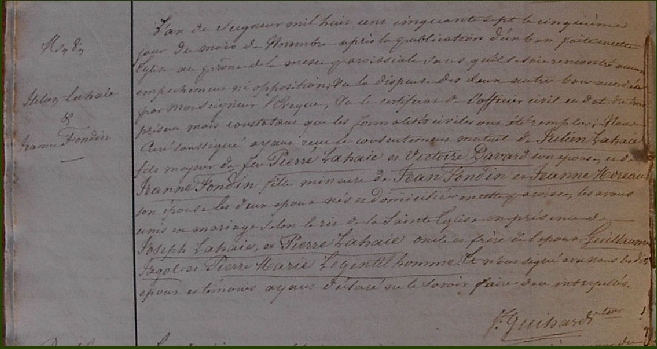 L'an du Seigneur mil huit cent cinquante sept le cinquième
jour du mois de Novembre après la publication d'un ban faite en cette
Eglise au prône de la messe paroissiale sans qu'il se soit rencontré aucun
empêchement ni opposition, Vu la dispense des deux autres bans accordée
par Monseigneur l'Evêque, Vu le certificat de l'officier civil en date du
mois constatant que les formalités civiles ont été remplies, Nous
Curé soussigné ayant reçu le consentement mutuel de Julien Lahaie
fils majeur de feu Pierre Lahaie et Victoire Davard son épouse, et de
Jeanne Fondin fille mineure de Jean Fondin et Jeanne
son épouse les deux époux nés et domiciliés en cette paroisse, les avons
unis en mariage selon le rit de la Sainte Eglise en présence de
Joseph Lahaie, et Pierre Lahaie oncle et frère de l'époux, Guillaume
et Pierre Marie Legentilhomme
époux et témoins ayant déclaré ne le savoir faire de ce interpellés.
Julien Lahaie
&
Jeanne Fondin
Guihard